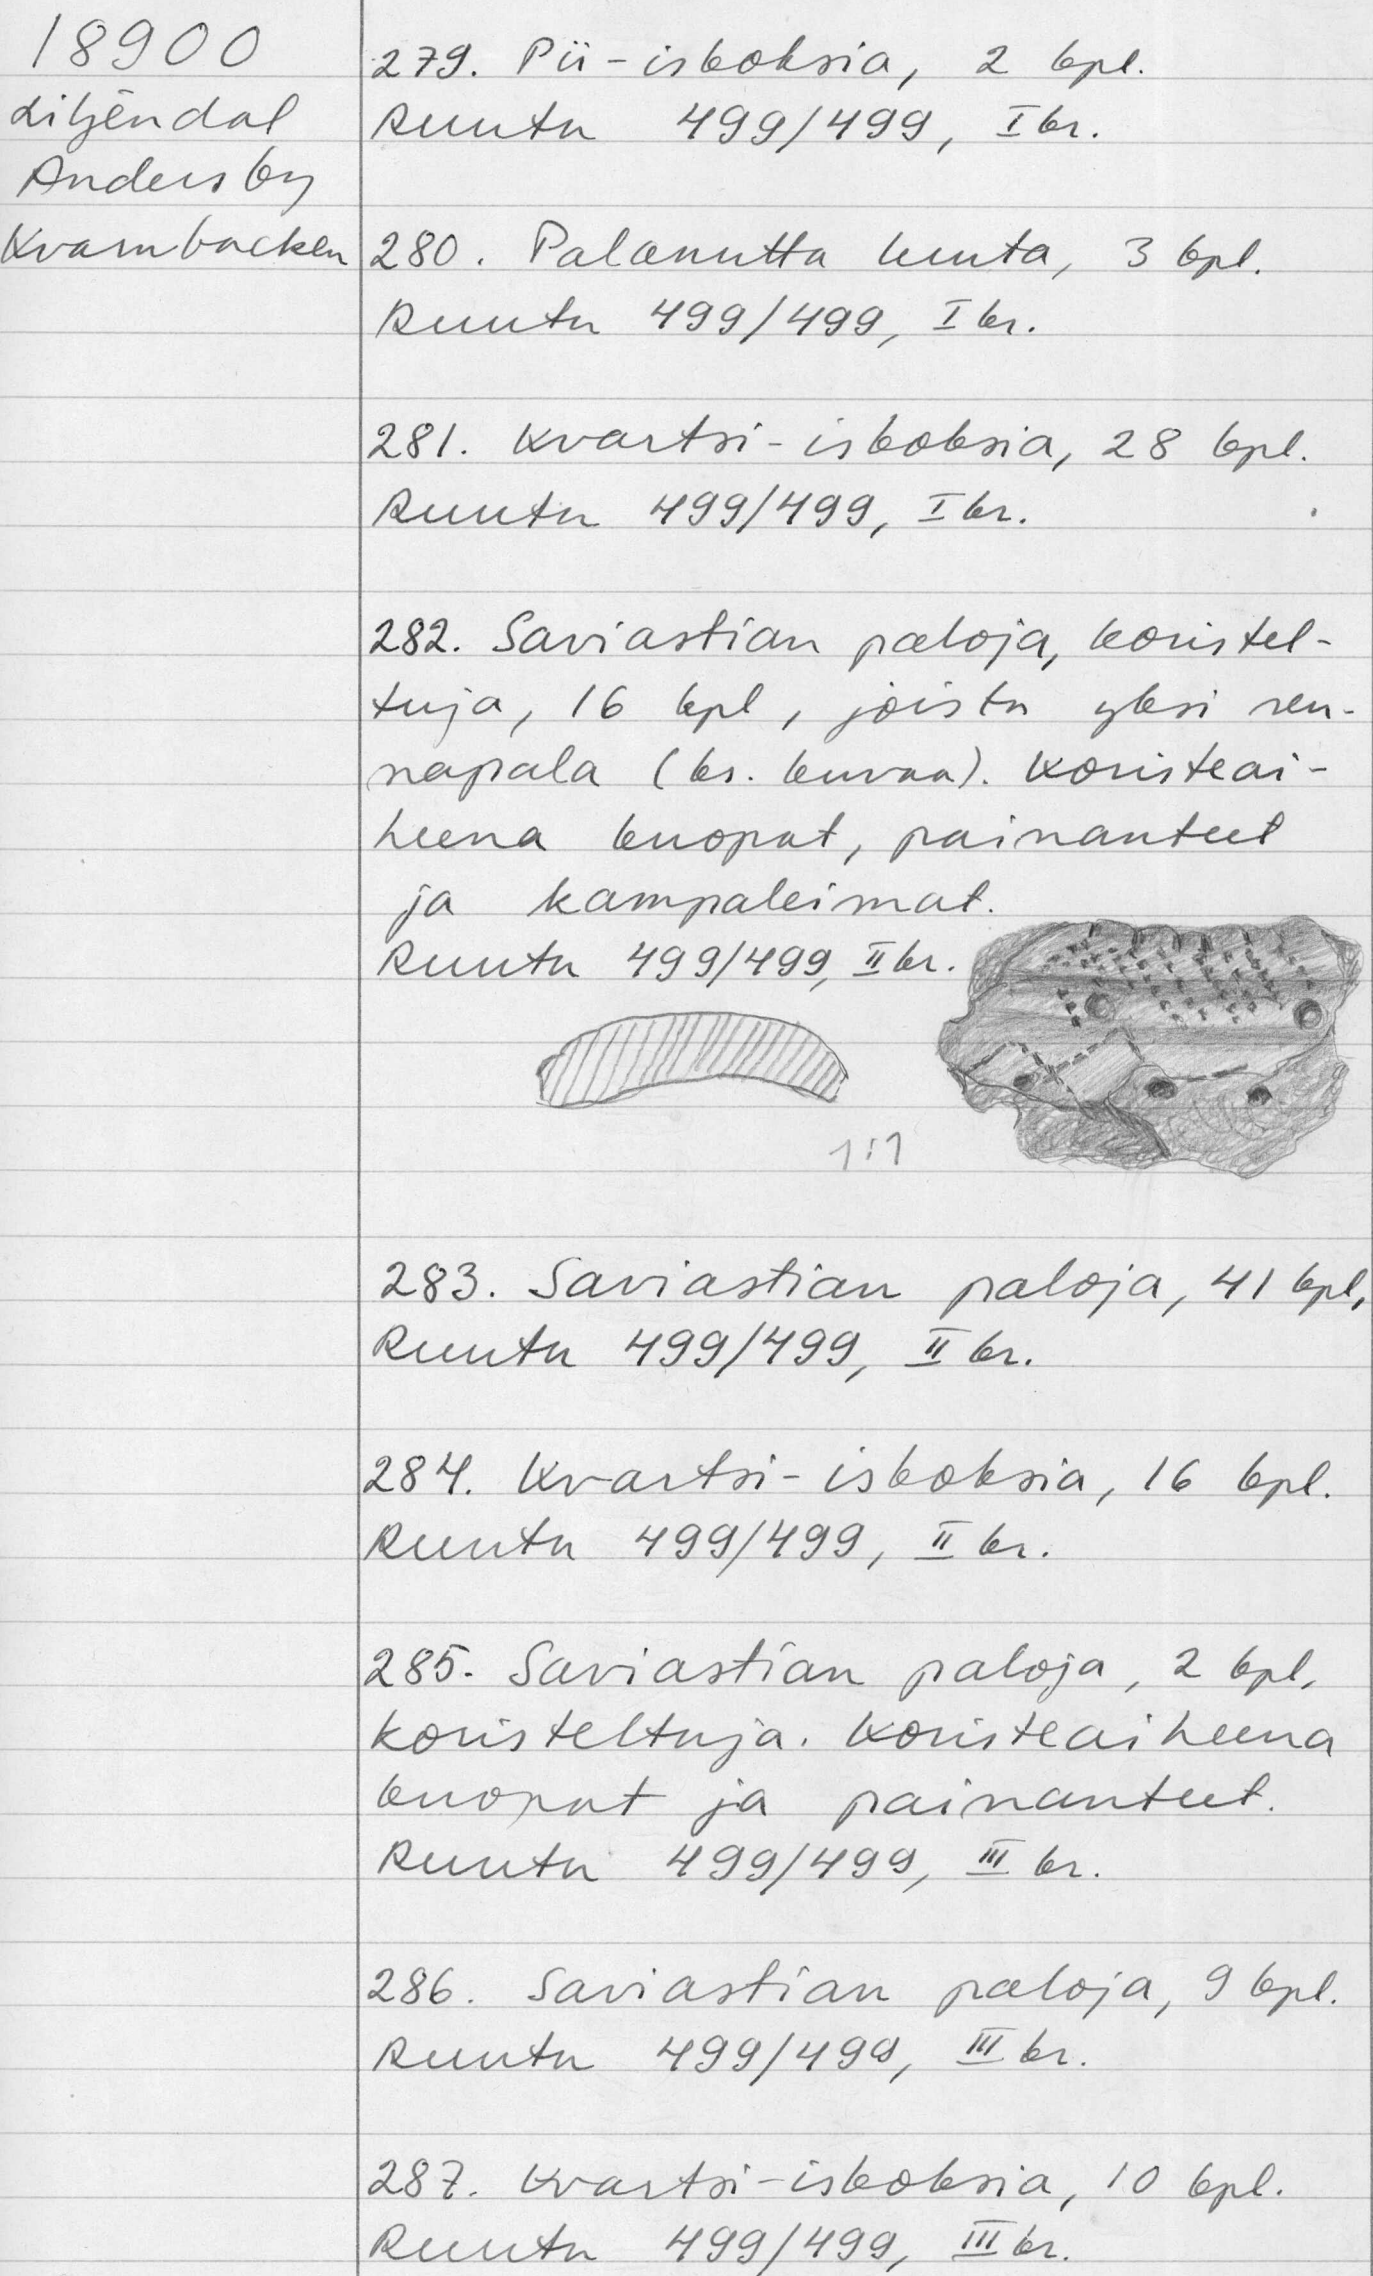 18900
Liljendal
Andersby
Kvarnbacken
279. Pii-iskoksia, 2 kpl.
Ruutu 499/499, I kr.
280. Palanutta luuta, 3 kpl.
Ruutu 499/499, I kr.
281. Kvartsi-iskoksia, 28 kpl.
Ruutu 499/499, I kr.
282. Saviastian paloja, koristel-
tuja, 16 kpl, joista yksi reu-
napala (ks. kuvaa). Koristeai-
heena kuopat, painanteet
ja kampaleimat.
Ruutu 499/499, II kr.
1:1
283. Saviastian paloja, 41 kpl,
Ruutu 499/499, II kr.
284. Kvartsi-iskoksia, 16 kpl.
Ruutu 499/499, II kr.
285. Saviastian paloja, 2 kpl,
koristeltuja. Koristeaiheena
kuopat ja painanteet.
Ruutu 499/499, III kr.
286. Saviastian paloja, 9 kpl.
Ruutu 499/499, III kr.
287. Kvartsi-iskoksia, 10 kpl.
Ruutu 499/499, III kr.